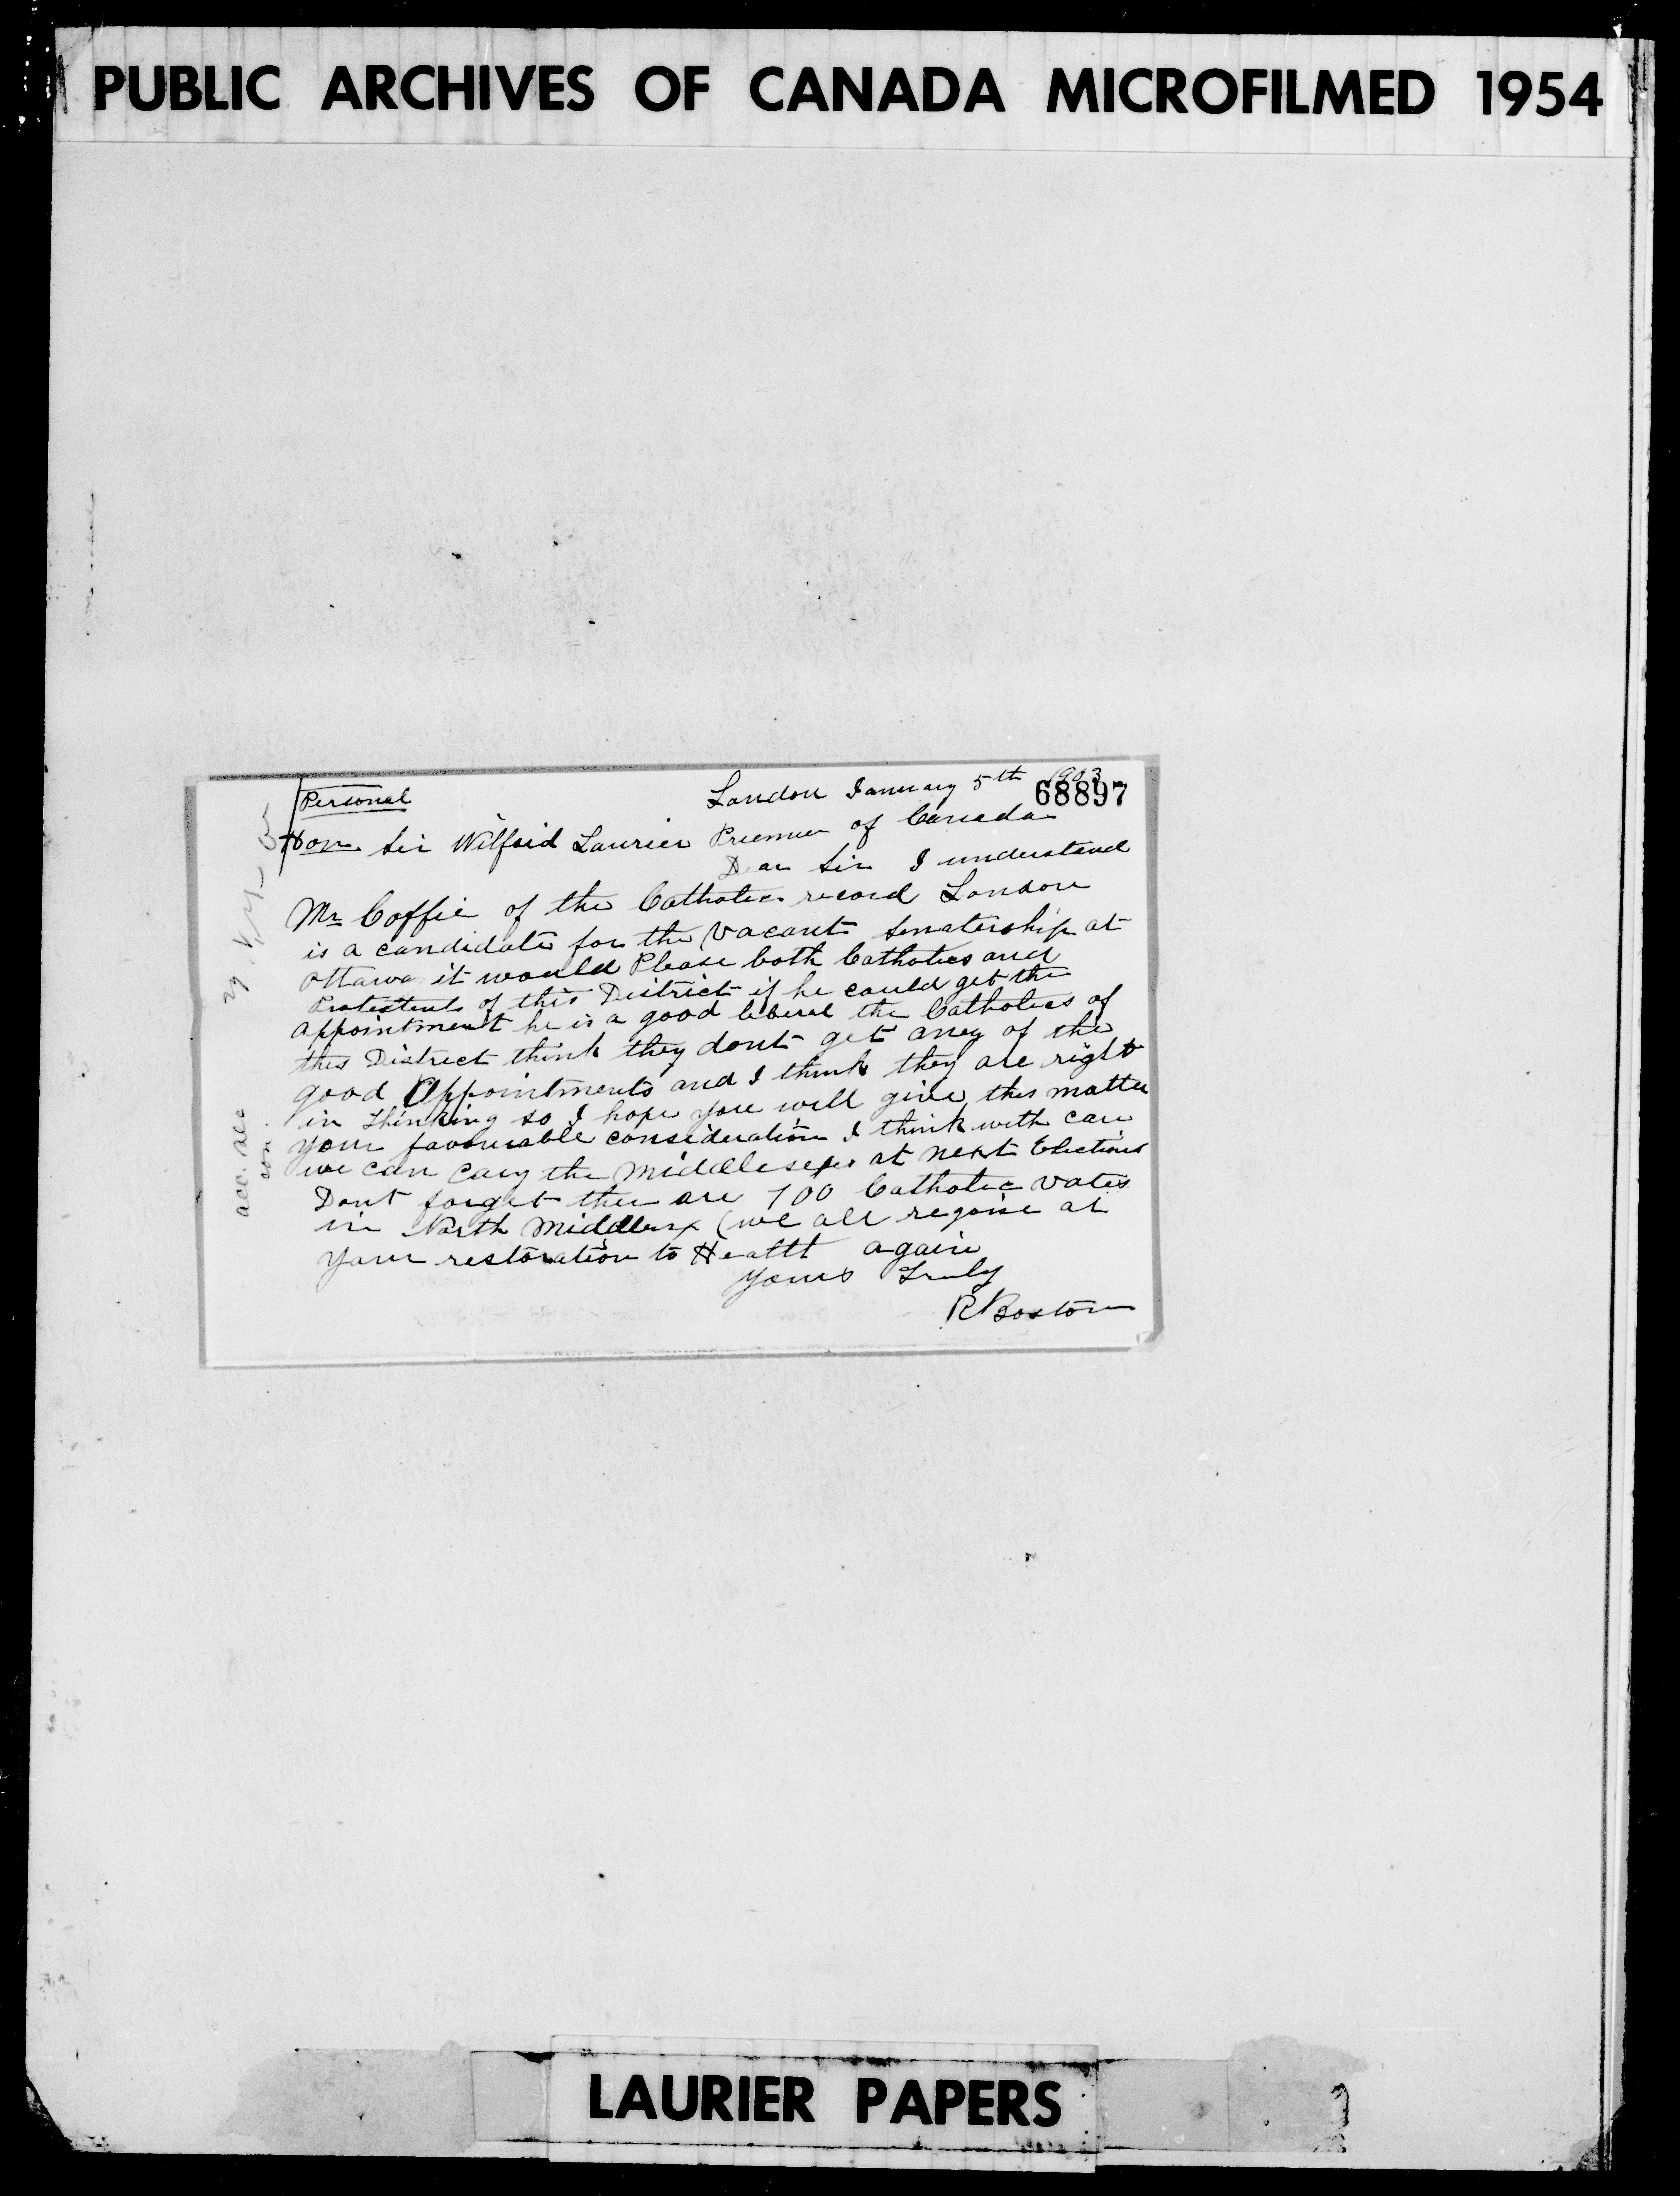 PUBLIC ARCHIVES OF CANADA MICROFILMED 1954
Personal
London January 5th 1903
68897
Hon Sir Wilfrid Laurier Priemier of Canada
Dear Sir I understand
Mr Coffie of the Catholic record London
is a candidate for the vacant senatership at
Ottawa it would Please both Catholics and
Protestents of this District if he could get the
appointment he is a good liberal the Catholics of
this District think they dont get aney of the
good Appointments and I think they are right
in thinking so I hope you will give this matter
your favourable consideration I think with care
we can cary the Middlesexes at next Elections
Dont forget ther are 700 Catholic votes
in North Middlesex (we all regoise at
your restoration to Healtt again
yours Truly
R Boston
acc. rec
LAURIER PAPERS